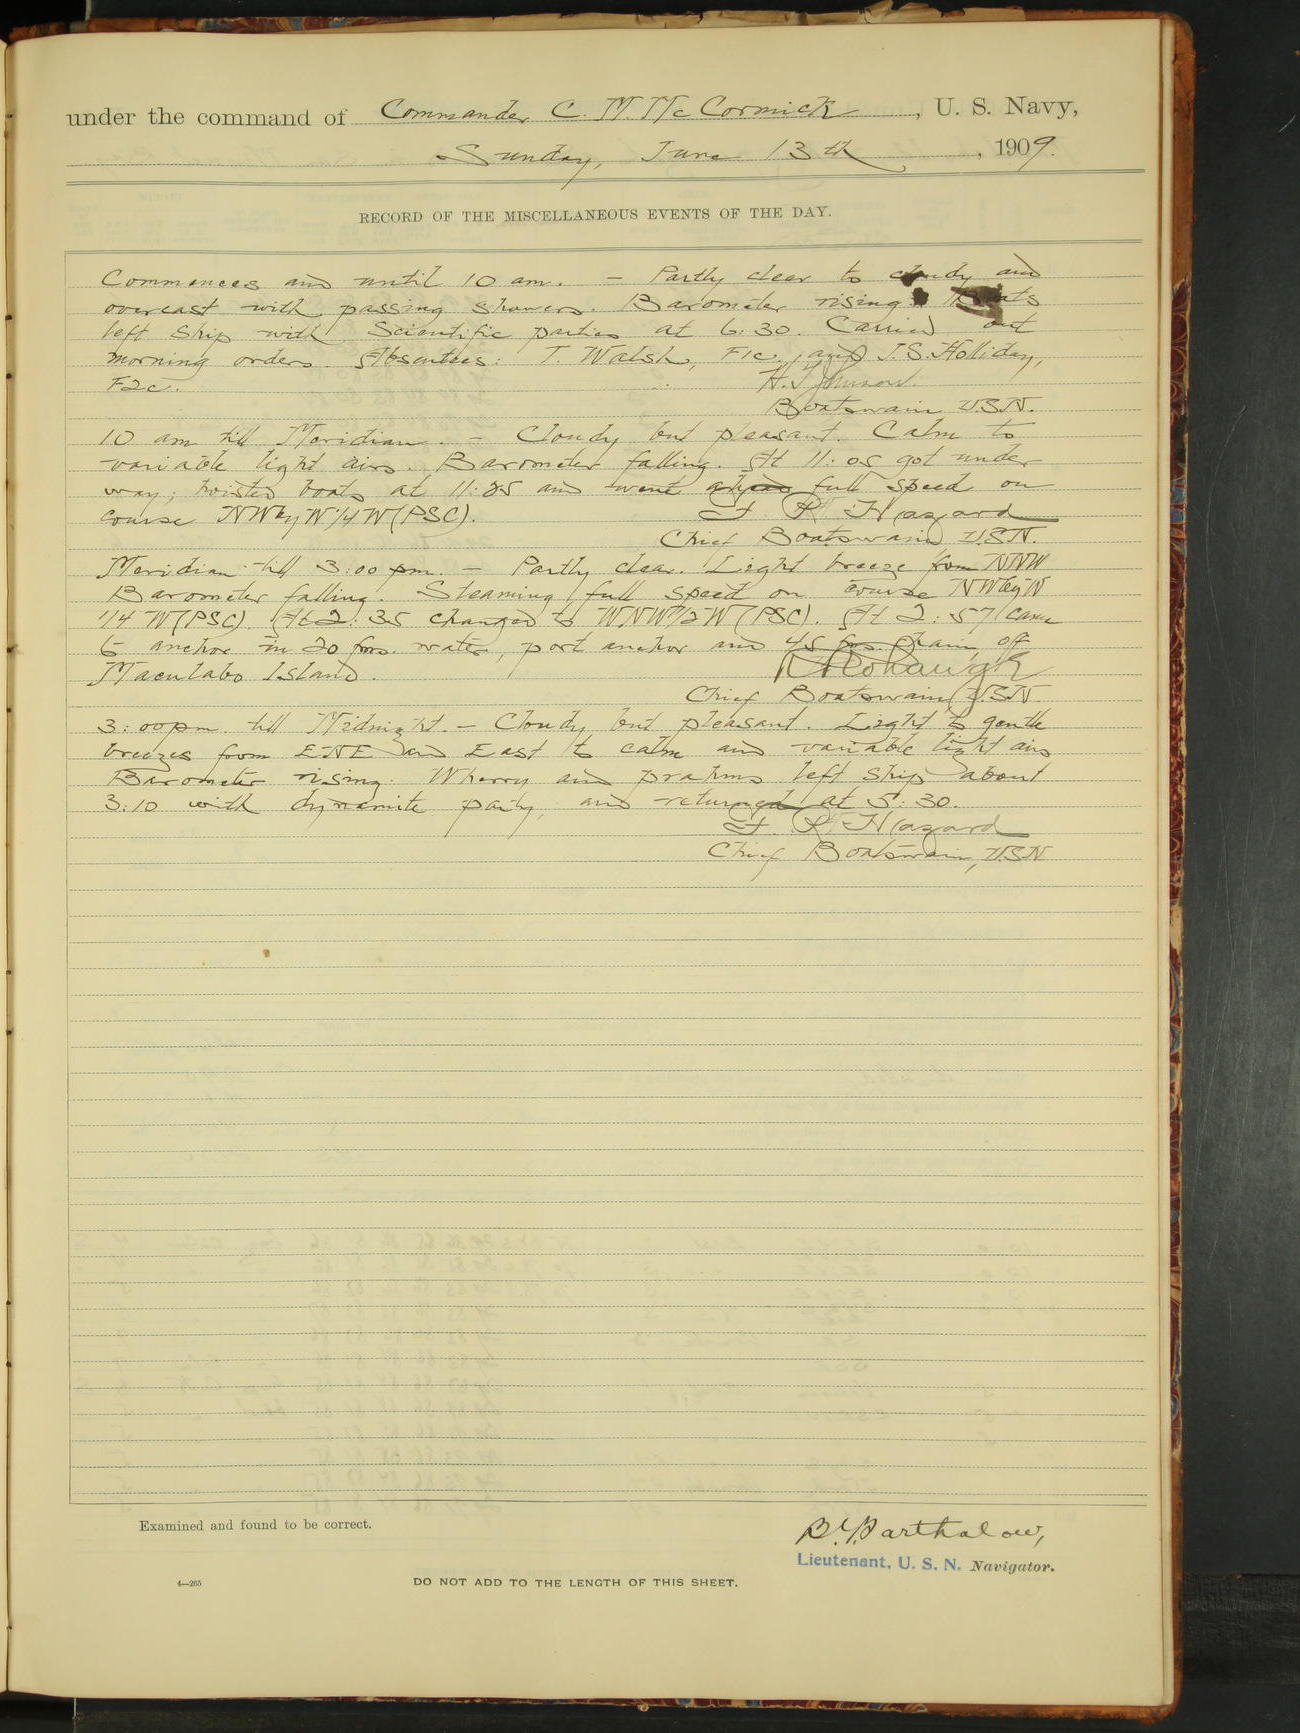 under the command of Commander C. M. McCormick, U. S. Navy,
Sunday, June 13th, 1909.
RECORD OF THE MISCELLANEOUS EVENTS OF THE DAY.
Commences and until 10 am. — Partly clear to cloudy and
overcast with passing showers. Barometer rising. Boats
left ship with Scientific parties at 6:30. Carried out
morning orders. Absentees: T. Walsh, F1c., and J. S. Holliday,
F2c. H. T. Johnson.
Boatswain U.S.N.
10 am till Meridian. — Cloudy but pleasant. Calm to
variable light airs. Barometer falling. At 11:05 got under
way; hoisted boats at 11:25 and went ahead full speed on
course NWbyW1/4W(PSC). F. R. Hazard
Chief Boatswain U.S.N.
Meridian till 3:00 pm. — Partly clear. Light breeze from NNW
Barometer falling. Steaming full speed on course NWbyW
1/4 W(PSC). At 2:35 changed to WNW1/2W(PSC). At 2:57 came
to anchor in 20 fms. water, port anchor and 45 fms. chain, off
Maculabo Island.
Chief Boatswain U.S.N.
3:00pm till Midnight — Cloudy but pleasant. Light to gentle
breezes from ENE and East to calm and variable light airs
Barometer rising. Wherry and prahms left ship about
3:10 with dynamite party, and returned at 5:30.
F. R. Hazard
Chief Boatswain, USN
Examined and found to be correct.
Barthalow,
Lieutenant, U. S. N. Navigator.
4—265
DO NOT ADD TO THE LENGTH OF THIS SHEET.